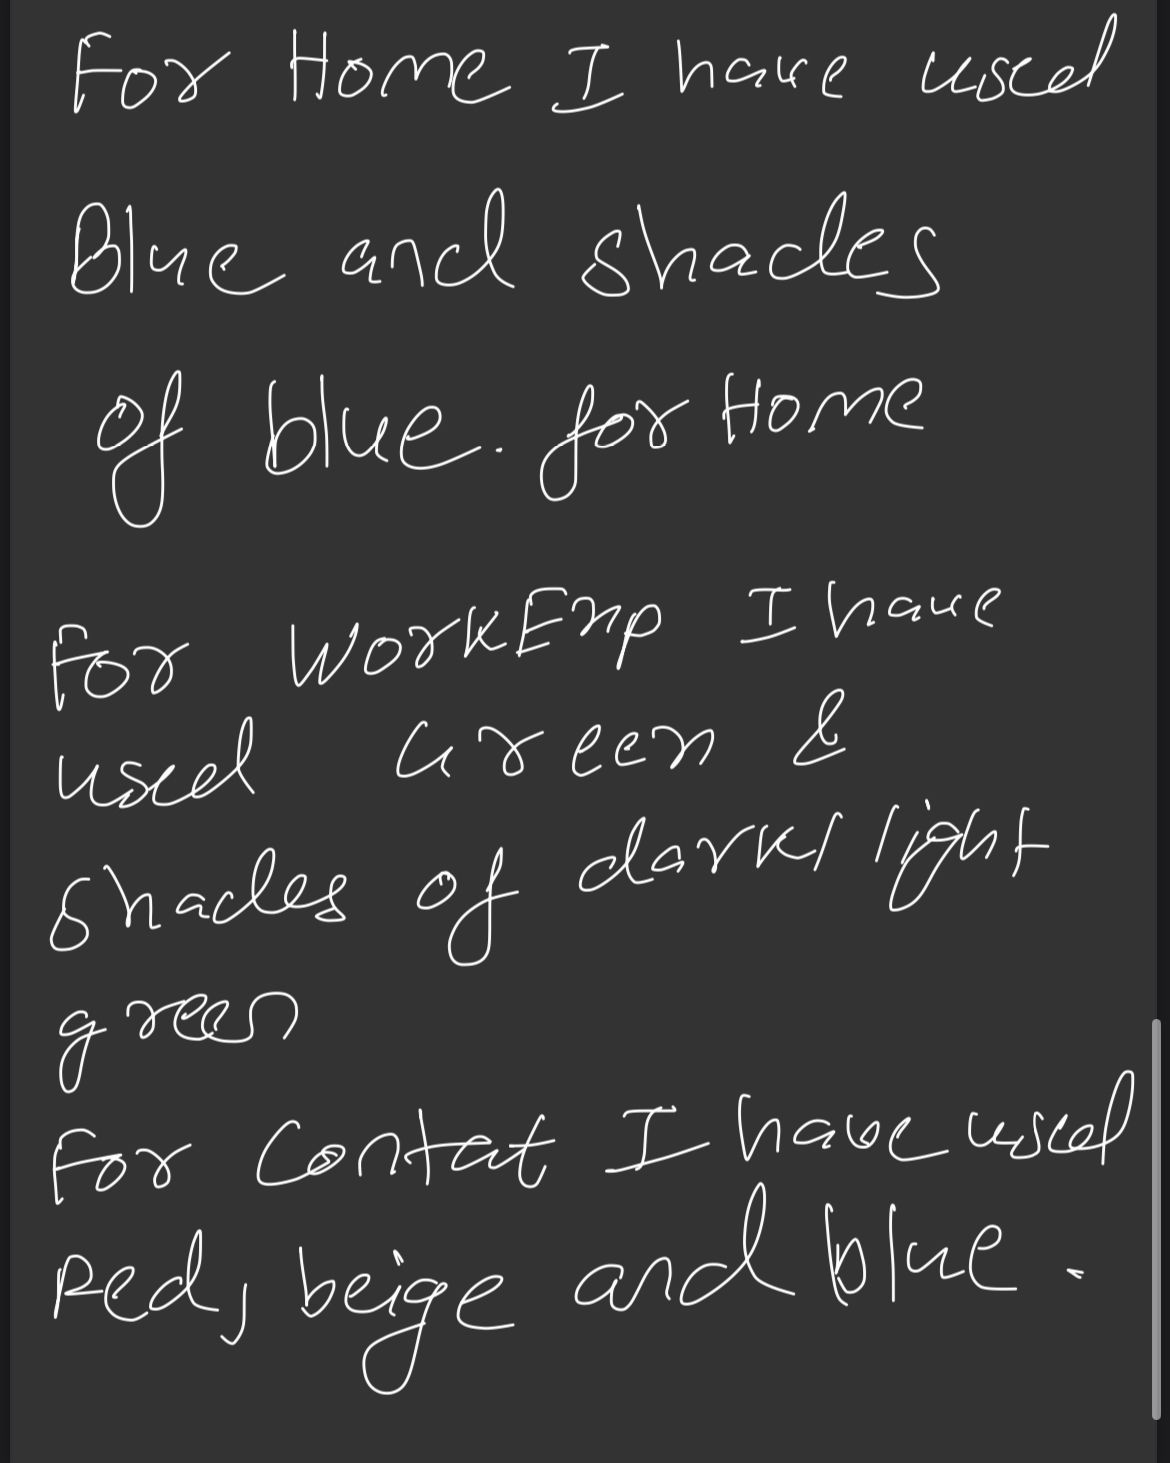 For Home I have used
Blue and shades
of blue. for Home
For WorkExp I have
used Green &
shades of dark/light
green
For Contat I have used
Red, beige and blue.